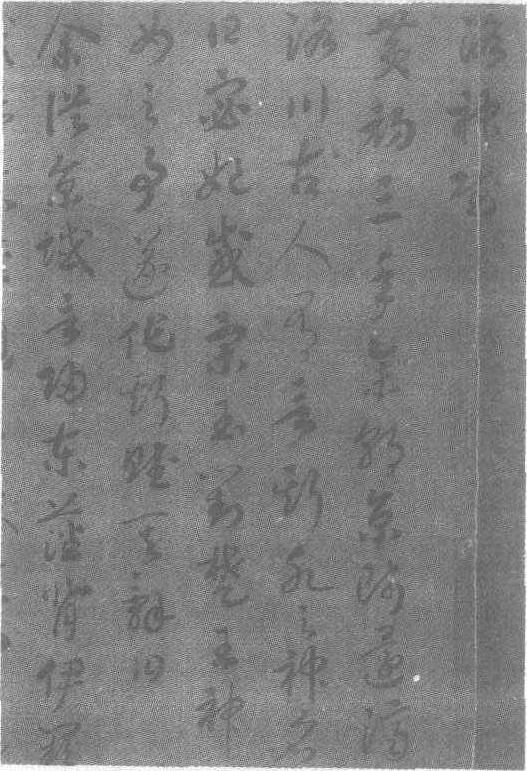 洛神賦
黃初三年余朝京師還濟
洛川古人有言斯水之神名
曰宓妃感宋玉對楚王神
女之事遂作斯賦其辭曰
余從京域言歸東藩背伊闕